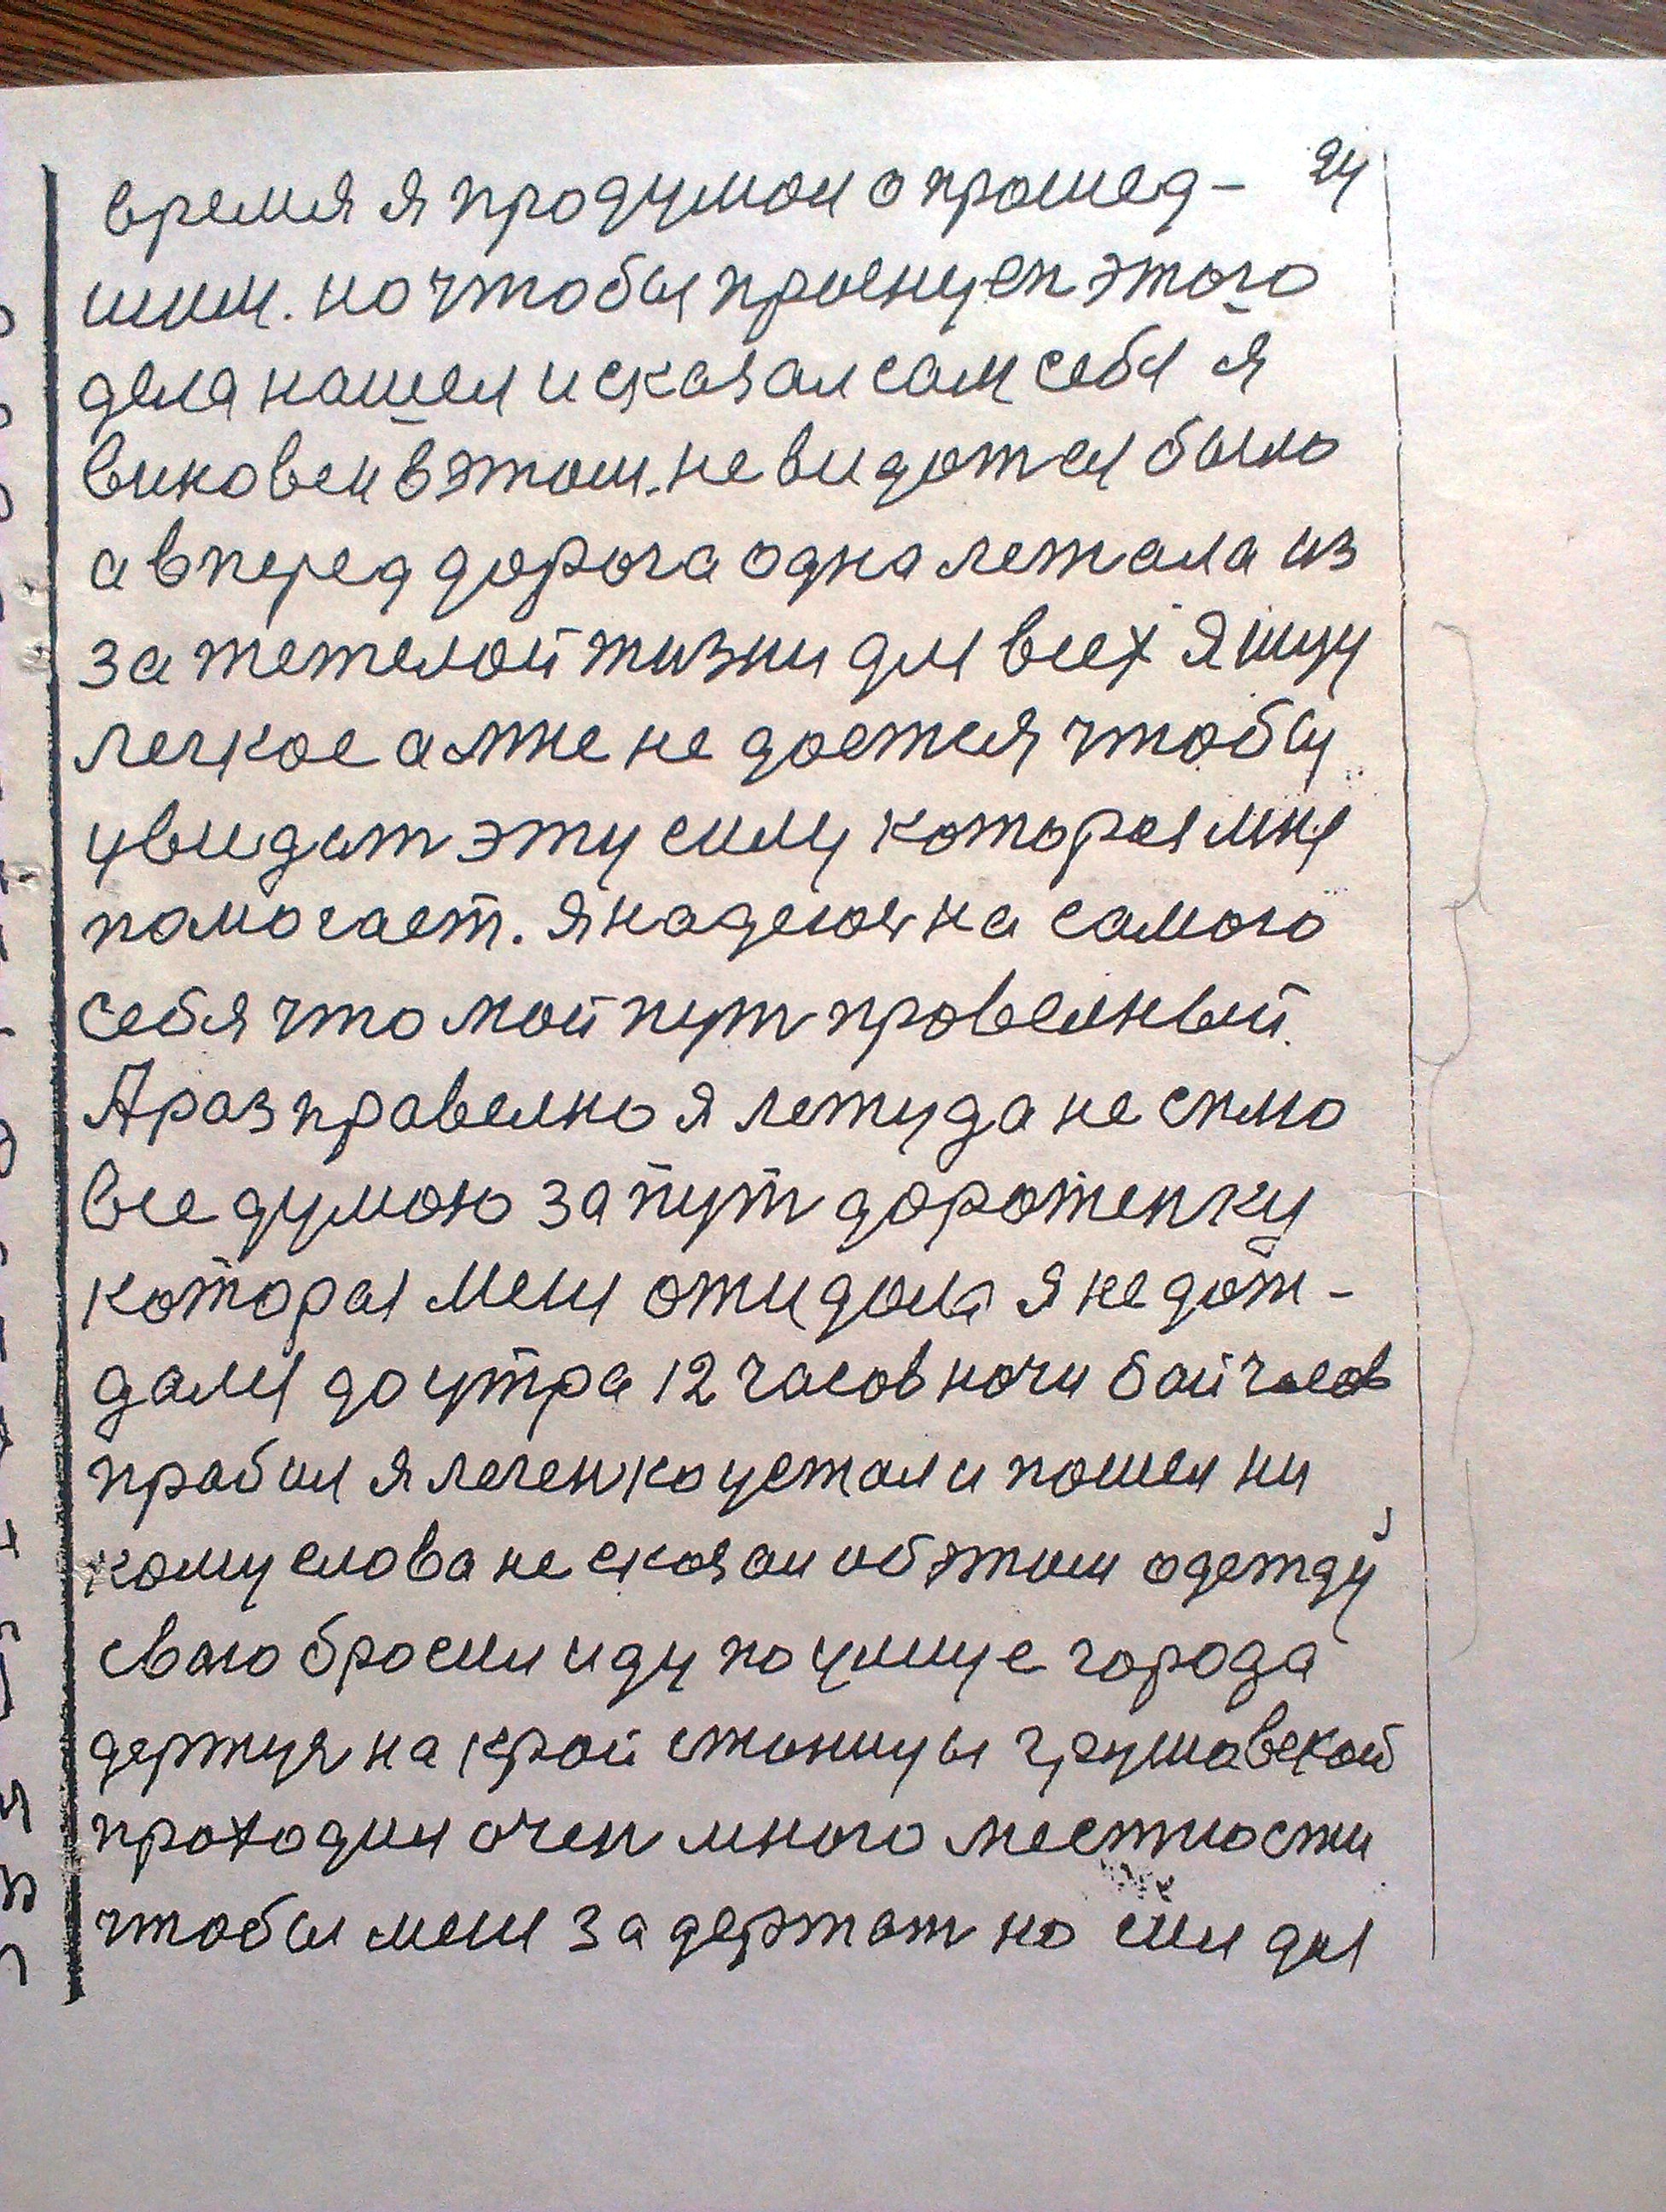 24
время я продумал о прошед-
шим. но чтобы проснуся этого
дела нашел и сказал сам себя я
виновен в этом. не видотся было
а вперед дорога одна лежала из
за тежелой жизни для всех я ищу
легкое а мне не доется чтобы
увидат эту силу которая мня
помогает. я надеюся на самого
себя что мой пут провелный.
А раз правелно я лежу да не спло
все думою за пут дороженку
которая меня ожидола я не дож-
дался до утра 12 часов ночи бой часов
пробил я легенко устал и пошел ни
кому слова не сказал об этом одежду
сваю бросил иду по улице города
держуся на край станицы грушавской
проходил очен много местности
чтобы меня задержат но